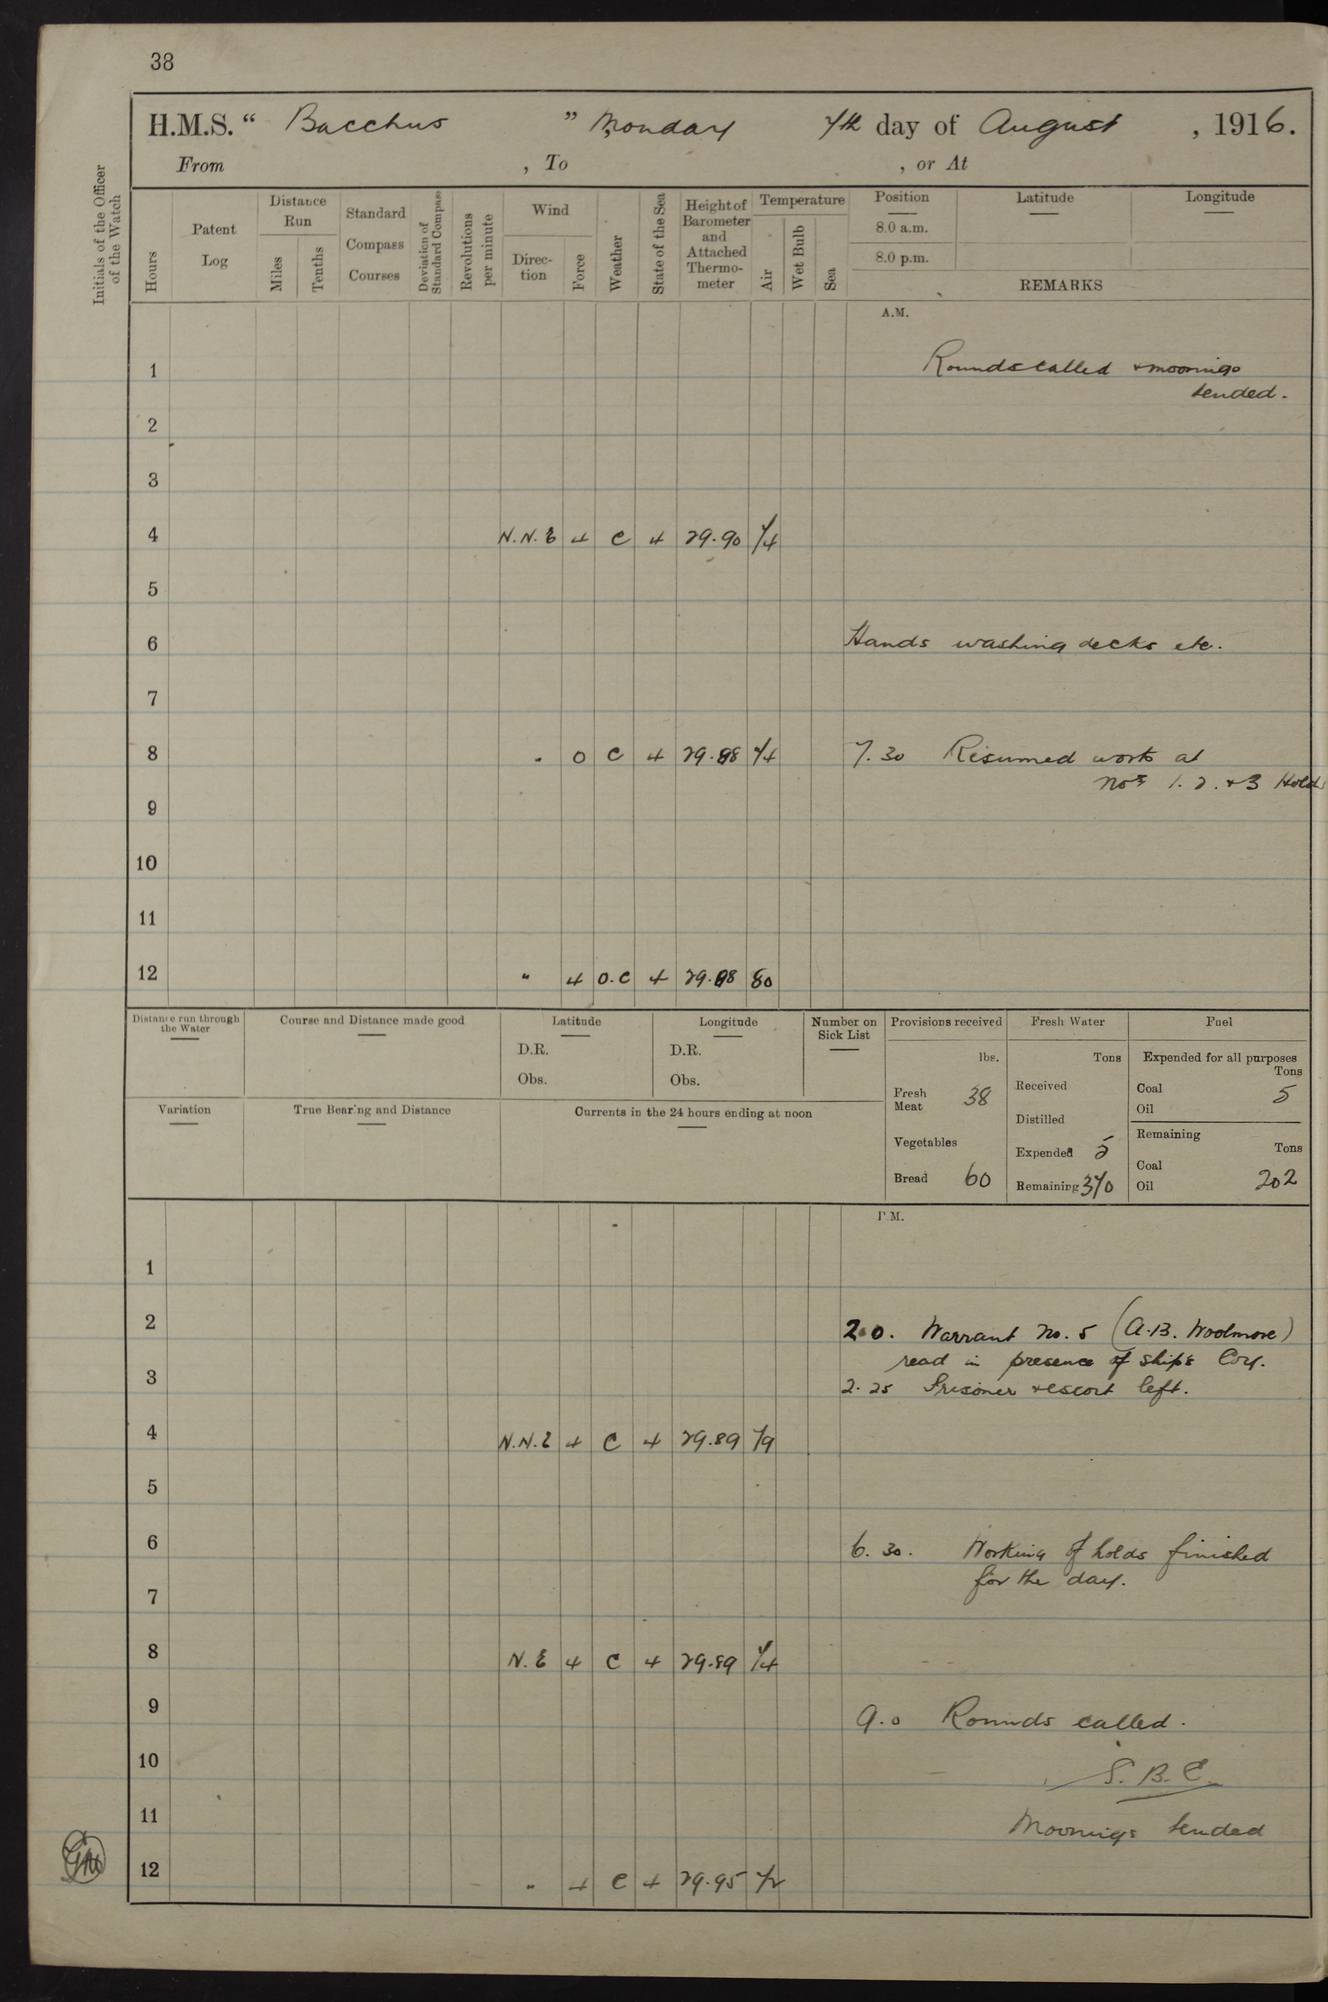 38
H.M.S. " Bacchus " Monday 7th day of August , 1916.
From , To , or At
Initials of the Officer of the Watch
Hours
Patent Log
Distance Run
Miles
Tenths
Standard Compass Courses
Deviation of Standard Compass
Revolutions per minute
Wind
Direction
Force
Weather
State of the Sea
Height of Barometer and Attached Thermometer
Temperature
Air
Wet Bulb
Sea
Position Latitude Longitude
8.0 a.m.
8.0 p.m.
REMARKS
A.M.
1 Rounds called & moorings
tended.
2
3
4 N.N.E 4 C 4 29.90 74
5
6 Hands washing decks etc.
7
8 " 0 C 4 29.88 74 7.30 Resumed work at
Nos 1. 2. & 3 Holds
9
10
11
12 " 4 O.C 4 29.88 80
Distance run through the Water
Course and Distance made good
Latitude
D.R.
Obs.
Longitude
D.R.
Obs.
Number on Sick List
Provisions received
lbs.
Fresh Meat 38
Vegetables
Bread 60
Fresh Water
Tons
Received
Distilled
Expended 5
Remaining 370
Fuel
Expended for all purposes
Tons
Coal 5
Oil
Remaining
Tons
Coal
Oil 202
Variation
True Bearing and Distance
Currents in the 24 hours ending at noon
P.M.
1
2 2.0. Warrant No. 5 (A.B. Woolmore)
read in presence of ship's Coy.
3 2.25 Prisoner & escort left.
4 N.N.E 4 C 4 29.89 79
5
6 6.30. Working of holds finished
for the day.
7
8 N.E 4 C 4 29.89 74
9 9.0 Rounds called.
10 S.B.E.
11 Moorings tended
12 " 4 C 4 29.95 72